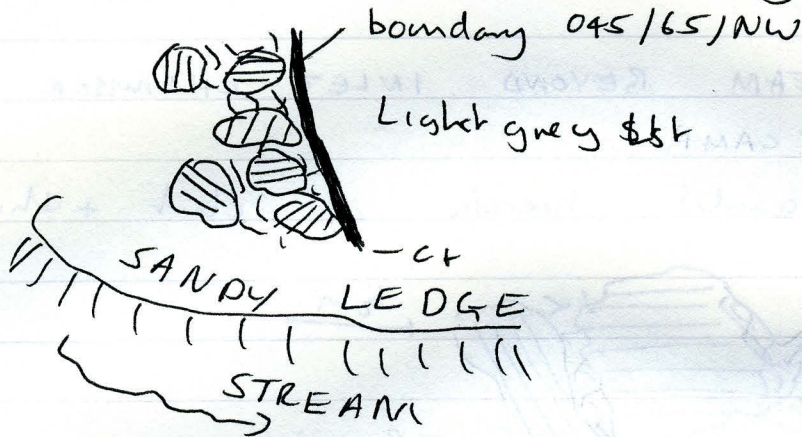 boundary 045/65/NW
Light grey sst
— Ct
SANDY LEDGE
STREAM